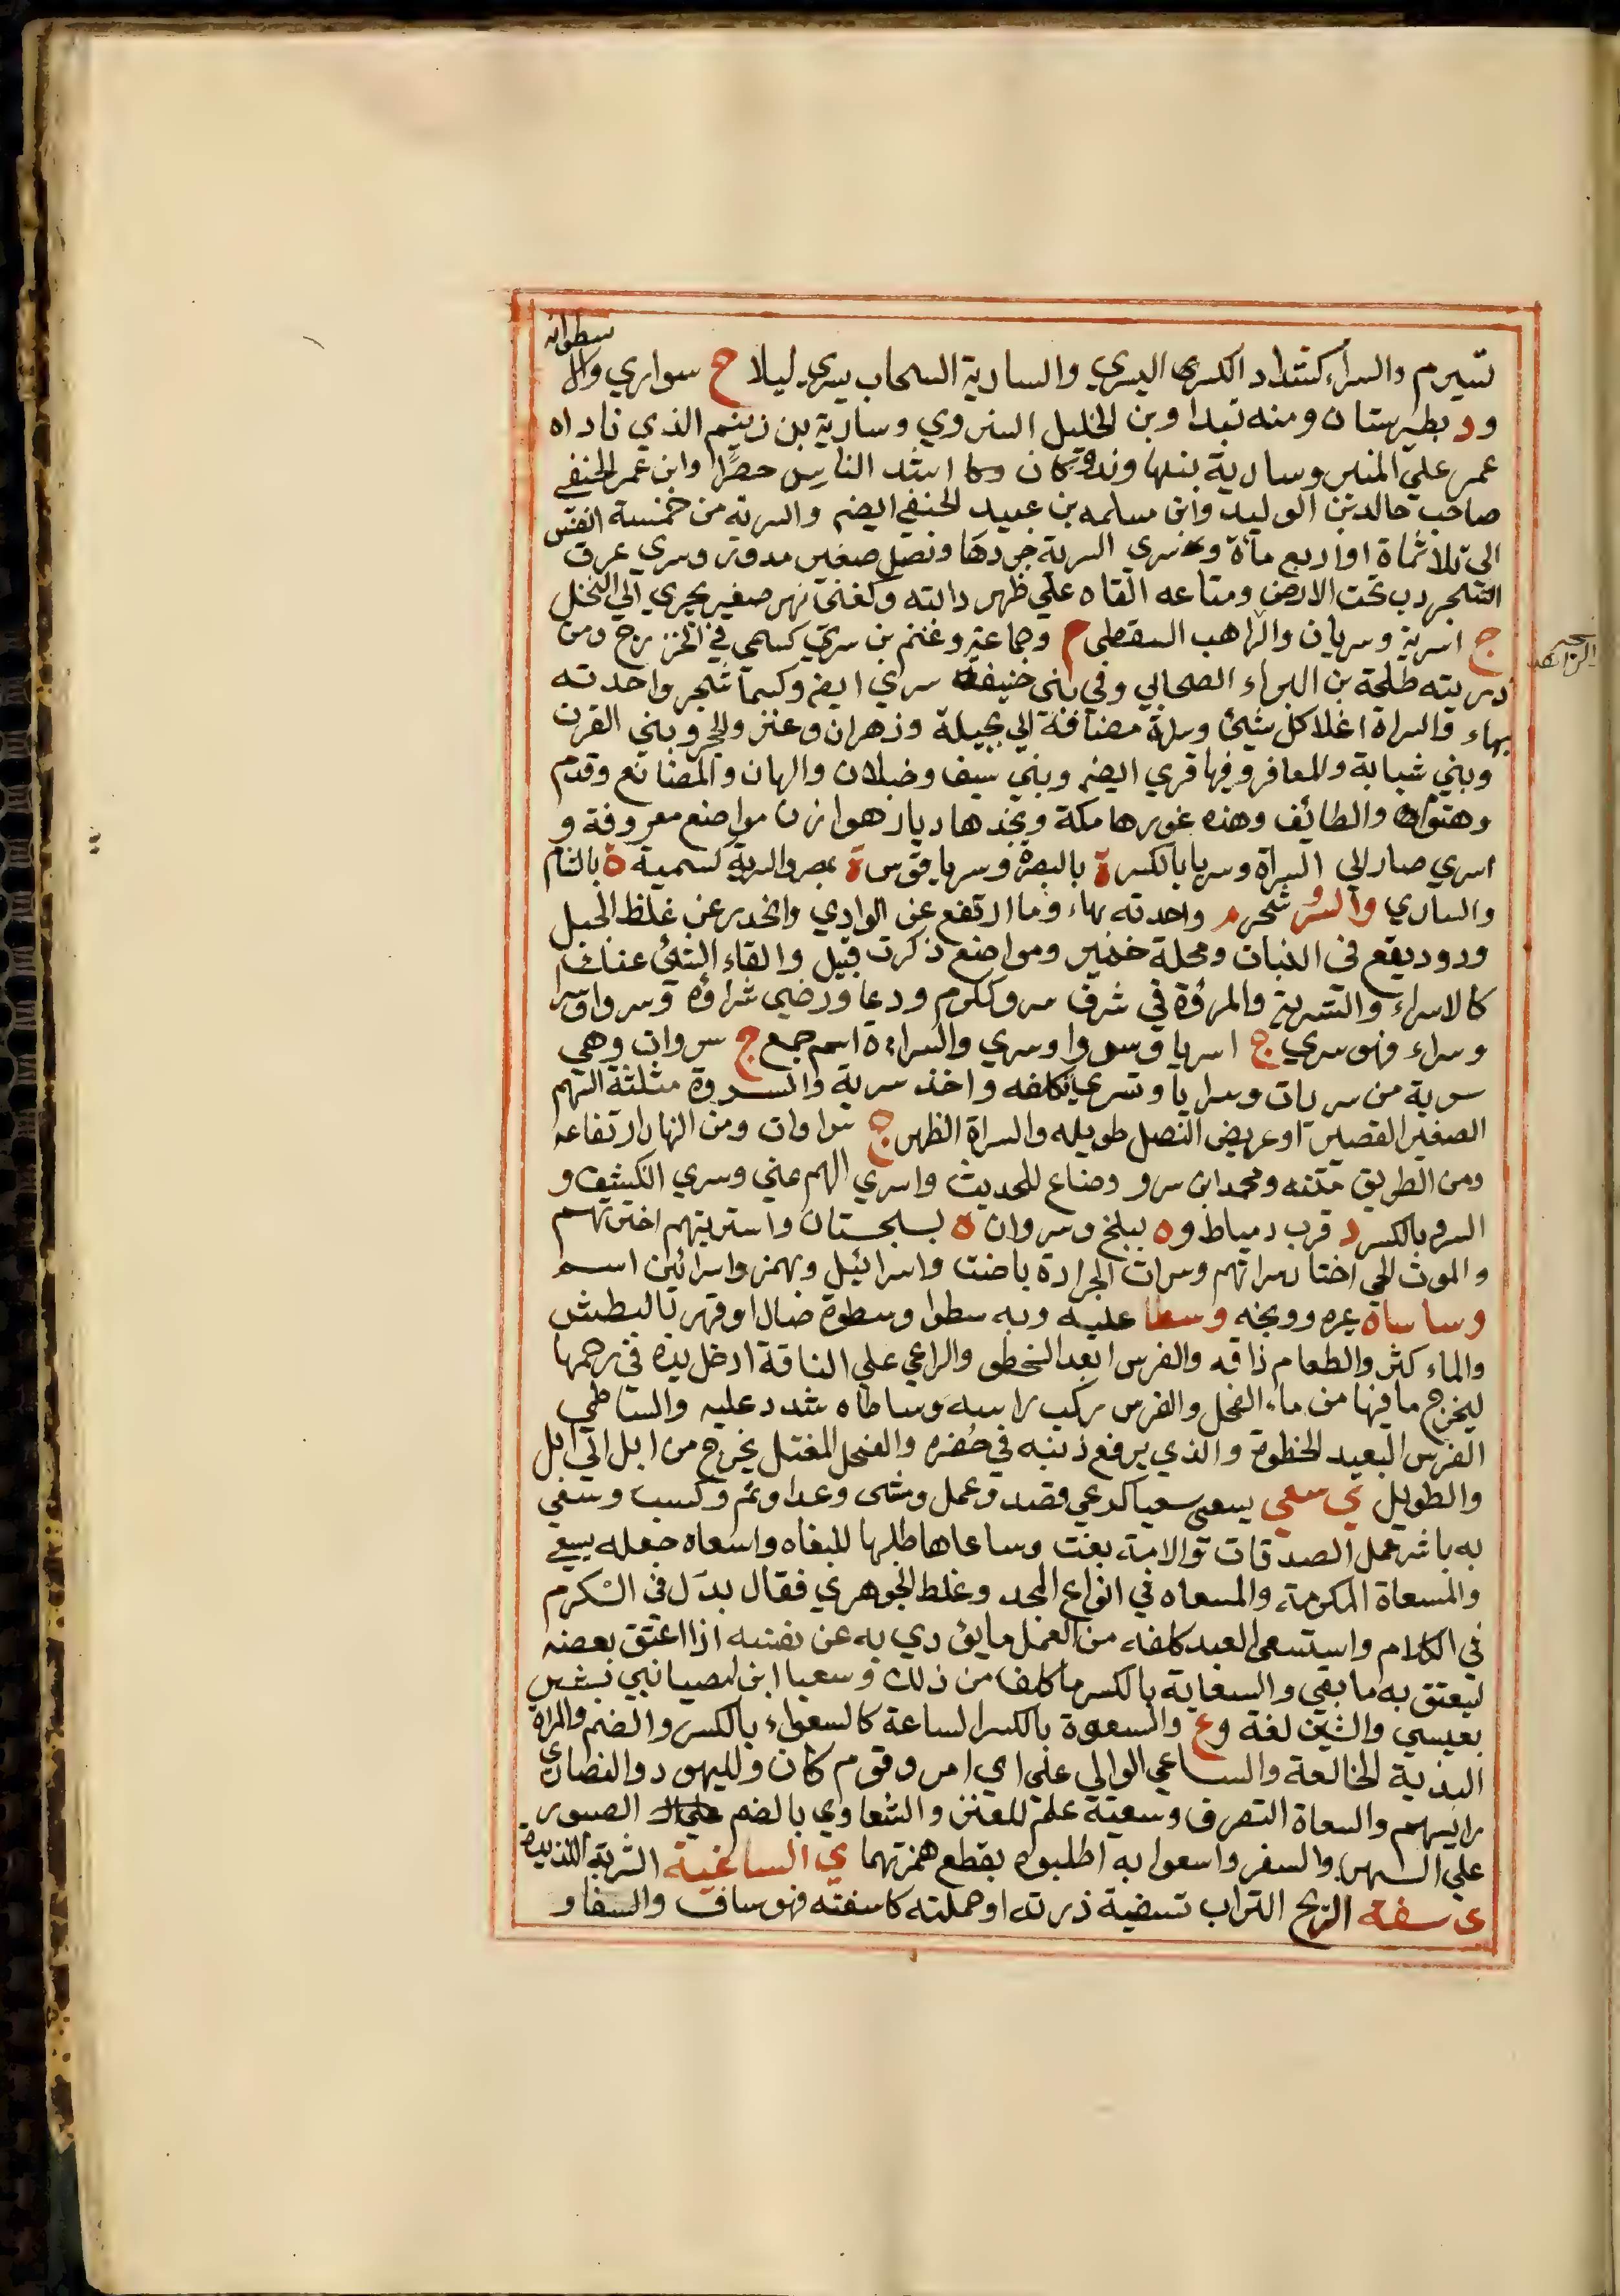 سطوانه
تسيرم والسراء كشداد الكسرى اليسري والسارية السحاب يسري ليلا ج سواري وال
ود بطبرستان ومنه تبدا وبن الخليل السروي وسارية بن زنيم الذي ناداه
عمر علي المنبر وسارية بنهاوند وكان اشد الناس حصرا وابن عمر الحنفي
صاحب خالد بن الوليد وابن مسلمه بن عبيد الحنفي ايضم والسرية من خمسة انفس
الي ثلاثماة او اربع ماة وسري السرية جردها ونصل صغير مدور وسري عرق
الشجر دب تحت الارض ومتاعه القاه علي ظهر دابته وكغني نهر صغير يجري الي النخل
ج اسرية وسريان والراهب السقطي م وجماعة وغنم بن سري كسمي في الخزرج ومن
ذريته طلحة بن البراء الصحابي وفي بني حنيفة سري ايضم وكسما شجر واحدته
بهاء والسراة اعلا كل شيئ وسراة مضافة الي بجيلة وزهران وعنز والحجر وبني القرن
وبني شبابة والمعافر وفيها قري ايضم وبني سيف وخبلان والهان والمصانع وقدم
وهتوان والطائف وهذه غورها مكة ونجدها ديار هوازن مواضع معروفة و
اسري صار الي السراة وسريا بالكسر ة بالبصرة وسرياقوس ة بمصر والسرية كسمية ة بالشام
والساري والسرو شجر م واحدته بهاء وما ارتفع عن الوادي وانحدر عن غلظ الجبل
ودود يقع في النبات ومحلة حمير ومواضع ذكرت قبل والقاء الشئ عنك
كالاسراء والتسرية والمروة في شرف سرو ككرم ودعا ورضي شراوة وسروا وسرا
وسراء فهو سري ج اسريا وسروا وسري والسراءة اسم جمع ج سروات وهي
سرية من سريات وسرايا وتسري تكلفه واخذ سرية والسروة مثلثة السهم
الصغير القصير او عريض النصل طويله والسراة الظهر ج سراوات ومن النهار ارتفاعه
ومن الطريق متنه ومحمد ابن سرو وضاع للحديث واسري الهم عني وسري انكشف و
السرو بالكسر د قرب دمياط وه ببلخ وسروان ة بسجستان واستريتهم اخترتهم
والموت الحي اختار سراتهم وسرات الجرادة باضت واسرائيل ويهمز واسرائين اسم
وساساه عيره ووبخه وسطا عليه وبه سطوا وسطوة صال او قهر بالبطش
والماء كثر والطعام ذاقه والفرس ابعد الخطو والراعي علي الناقة ادخل يده في رحمها
ليخرج ما فيها من ماء الفحل والفرس ركب راسه وساطاه شدد عليه والساطي
الفرس البعيد الخطوة والذي يرفع ذنبه في حضره والفحل المغتلم يخرج من ابل الي ابل
والطويل ي سعي يسعي سعيا كرعي قصد وعمل ومشى وعدا ونم وكسب وسعي
به باشر عمل الصدقات والامة بغت وساعاها طلبها للبغاء واسعاه جعله يسعي
والمسعاة المكرمة والمسعاه في انواع المجد وغلط الجوهري فقال بدل في الكرم
في الكلام واستسعي العبد كلفه من العمل ما يؤدي به عن نفسه اذا اعتق بعضه
ليعتق به ما بقي والسعاية بالكسر ما كلف من ذلك وسعيا ابن امصيا نبي بشر
بعيسي والشين لغة وع والسعوة بالكسر الساعة كالسعواء بالكسر والضم والمراة
البذية الخالعة والساعي الوالي علي اي امر وقوم كان ولليهود والنصاري
رايسهم والسعاة التصرف وسعية علم للعنز والسعاوي بالضم الصبور
علي السهر والسفر واسعوا به اطلبوه بقطع همزتهما ي الساغية الشربة اللذيذة
ي سفت الريح التراب تسفيه ذرته او حملته كاسفته فهو ساف والسفا و